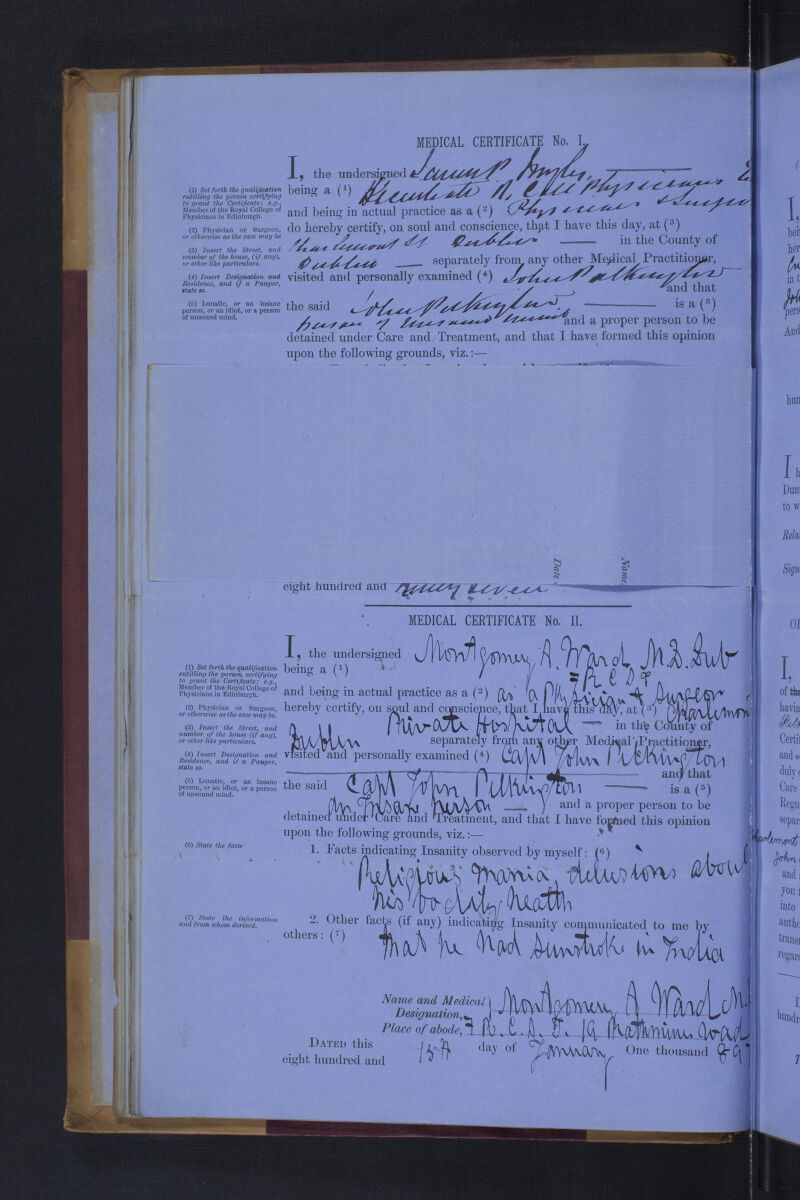 MEDICAL CERTIFICATE No. I.
I, the undersigned
(1) Set forth the qualification
entitling the person certifying
to grant the Certificate: e.g.,
Member of the Royal College of
Physicians in Edinburgh.
being a (1) Licentiate K. Coll Physicians
and being in actual practice as a (2) Physician & Surgeon
(2) Physician or Surgeon,
or otherwise as the case may be
do hereby certify, on soul and conscience, that I have this day, at (3)
Charlemont St Dublin in the County of
(3) Insert the Street, and
number of the house, (if any),
or other like particulars.
Dublin separately from any other Medical Practitioner,
(4) Insert Designation and
Residence, and if a Pauper,
state so.
visited and personally examined (4) John Pilkington
and that
(5) Lunatic, or an insane
person, or an idiot, or a person
of unsound mind.
the said John Pilkington is a (5)
person of unsound mind and a proper person to be
detained under Care and Treatment, and that I have formed this opinion
upon the following grounds, viz.:—
Date
Name
eight hundred and ninety seven
MEDICAL CERTIFICATE No. II.
I, the undersigned Montgomery A. Ward, M.B. Dub
(1) Set forth the qualification
entitling the person certifying
to grant the Certificate: e.g.,
Member of the Royal College of
Physicians in Edinburgh.
being a (1) F R C S I
and being in actual practice as a (2) as a Physician & Surgeon
(2) Physician or Surgeon,
or otherwise as the case may be.
hereby certify, on soul and conscience, that I have this day, at (3) Charlemont
Private Hospital in the County of
(3) Insert the Street, and
number of the house (if any),
or other like particulars.
Dublin separately from any other Medical Practitioner,
(4) Insert Designation and
Residence, and if a Pauper,
state so.
visited and personally examined (4) Capt John Pilkington
and that
(5) Lunatic, or an insane
person, or an idiot, or a person
of unsound mind.
the said Capt John Pilkington is a (5)
An Insane Person and a proper person to be
detained under Care and Treatment, and that I have formed this opinion
upon the following grounds, viz.:—
(6) State the facts
1. Facts indicating Insanity observed by myself: (6)
Religious mania, delusions about
his bodily health
(7) State the information
and from whom derived.
2. Other facts (if any) indicating Insanity communicated to me by
others: (7) that he had Sunstroke in India
Name and Medical
Designation, Montgomery A Ward M.
Place of abode, F R. C. S. I. 19 Rathmines Road
DATED this 15th day of January One thousand
eight hundred and 97